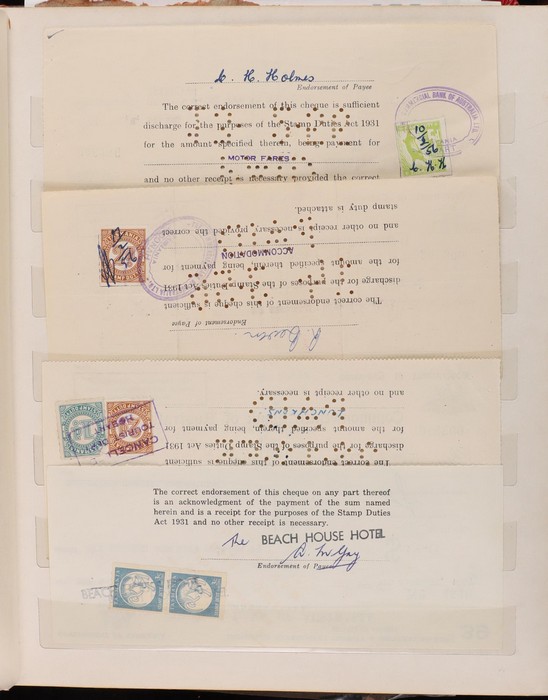 C. H. Holmes
Endorsement of Payee
The correct endorsement of this cheque is sufficient
discharge for the purposes of the Stamp Duties Act 1931
for the amount specified therein, being payment for
MOTOR FARES
and no other receipt is necessary provided the correct
BANK OF AUSTRALIA LTD
stamp duty is attached.
and no other receipt is necessary provided the correct
ACCOMMODATION
for the amount specified therein, being payment for
discharge for the purposes of the Stamp Duties Act 1931
The correct endorsement of this cheque is sufficient
Endorsement of Payee
and no other receipt is necessary.
LUNCHEONS
for the amount specified therein, being payment for
discharge for the purposes of the Stamp Duties Act 1931
The correct endorsement of this cheque is sufficient
CANCEL
TOURIST
HOBART
The correct endorsement of this cheque on any part thereof
is an acknowledgment of the payment of the sum named
herein and is a receipt for the purposes of the Stamp Duties
Act 1931 and no other receipt is necessary.
The BEACH HOUSE HOTEL
Endorsement of Payee